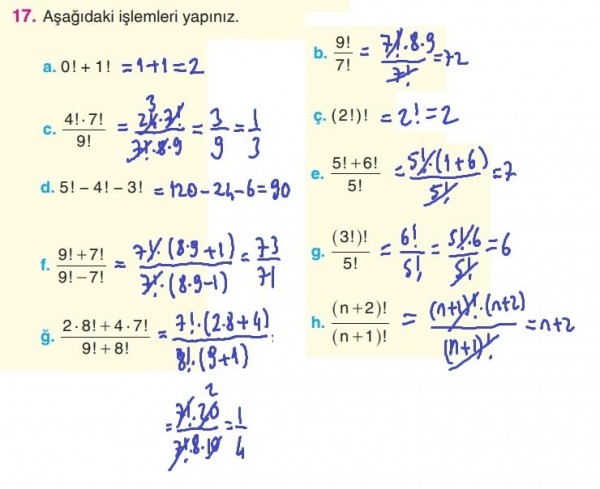 17. Aşağıdaki işlemleri yapınız.
a. 0! + 1! = 1+1 = 2
b. 9!/7! = 7!·8·9/7! = 72
c. 4!·7!/9! = 24·7!/7!·8·9 = 3/9 = 1/3
3
ç. (2!)! = 2! = 2
d. 5! – 4! – 3! = 120 – 24 – 6 = 90
e. 5!+6!/5! = 5!·(1+6)/5! = 7
f. 9!+7!/9!–7! = 7!·(8·9+1)/7!·(8·9–1) = 73/71
g. (3!)!/5! = 6!/5! = 5!·6/5! = 6
ğ. 2·8!+4·7!/9!+8! = 7!·(2·8+4)/8!·(9+1)
= 7!·20/7!·8·10 = 1/4
2
h. (n+2)!/(n+1)! = (n+1)!·(n+2)/(n+1)! = n+2